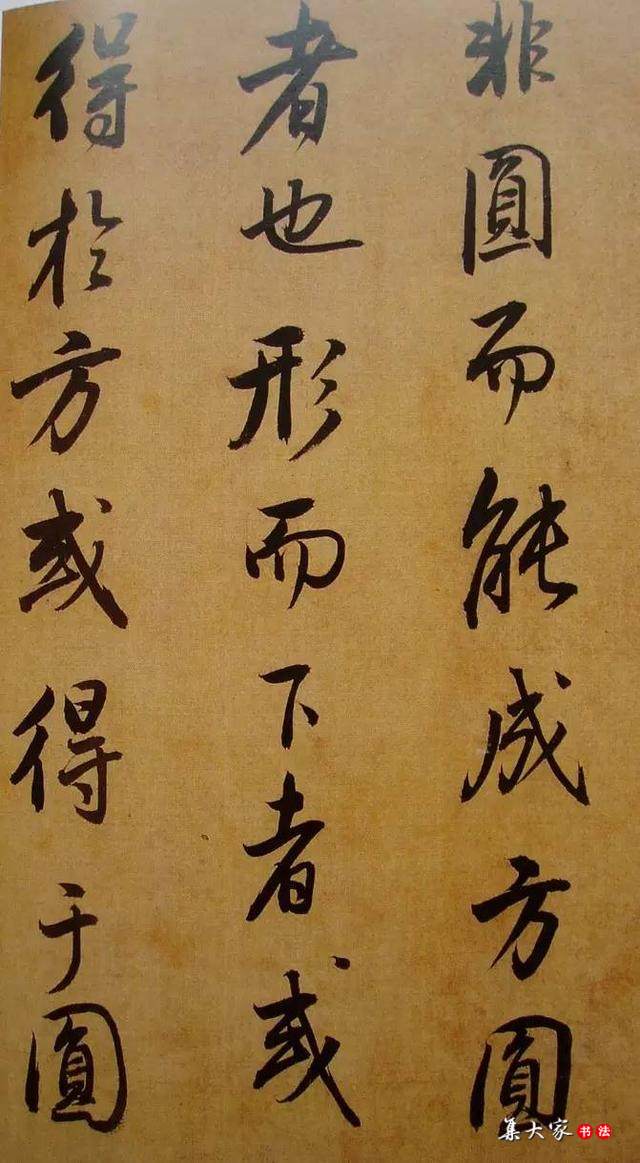 非圓而能成方圓
者也形而下者或
得於方或得于圓
集大家书法